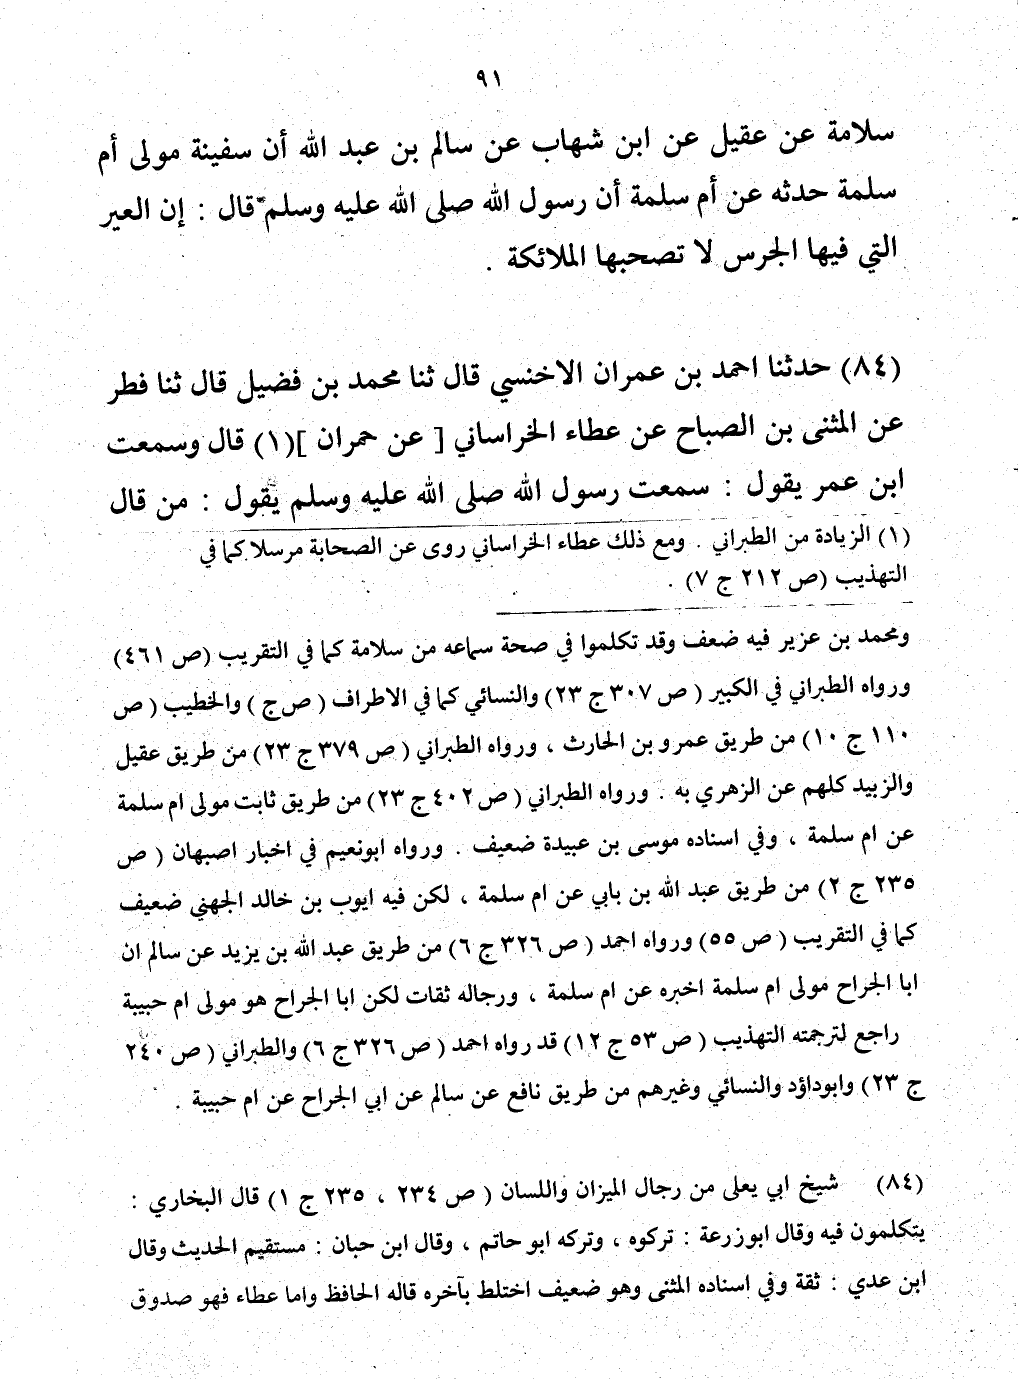 ٩١
سلامة عن عقيل عن ابن شهاب عن سالم بن عبد الله أن سفينة مولى أم
سلمة حدثه عن أم سلمة أن رسول الله صلى الله عليه وسلم قال : إن العير
التي فيها الجرس لا تصحبها الملائكة .
(٨٤) حدثنا احمد بن عمران الاخنسي قال ثنا محمد بن فضيل قال ثنا فطر
عن المثنى بن الصباح عن عطاء الخراساني [ عن حمران ](١) قال وسمعت
ابن عمر يقول : سمعت رسول الله صلى الله عليه وسلم يقول : من قال
(١) الزيادة من الطبراني . ومع ذلك عطاء الخراساني روى عن الصحابة مرسلا كما في
التهذيب (ص ٢١٢ ج ٧) .
ومحمد بن عزير فيه ضعف وقد تكلموا في صحة سماعه من سلامة كما في التقريب (ص ٤٦١)
ورواه الطبراني في الكبير ( ص ٣٠٧ ج ٢٣) والنسائي كما في الاطراف ( ص ج ) والخطيب ( ص
١١٠ ج ١٠) من طريق عمرو بن الحارث ، ورواه الطبراني ( ص ٣٧٩ ج ٢٣) من طريق عقيل
والزبيد كلهم عن الزهري به . ورواه الطبراني ( ص ٤٠٢ ج ٢٣) من طريق ثابت مولى ام سلمة
عن ام سلمة ، وفي اسناده موسى بن عبيدة ضعيف . ورواه ابونعيم في اخبار اصبهان ( ص
٢٣٥ ج ٢) من طريق عبد الله بن بابي عن ام سلمة ، لكن فيه ايوب بن خالد الجهني ضعيف
كما في التقريب ( ص ٥٥) ورواه احمد ( ص ٣٢٦ ج ٦) من طريق عبد الله بن يزيد عن سالم ان
ابا الجراح مولى ام سلمة اخبره عن ام سلمة ، ورجاله ثقات لكن ابا الجراح هو مولى ام حبيبة
راجع لترجمته التهذيب ( ص ٥٣ ج ١٢) قد رواه احمد ( ص ٣٢٦ ج ٦) والطبراني ( ص ٢٤٠
ج ٢٣) وابوداؤد والنسائي وغيرهم من طريق نافع عن سالم عن ابي الجراح عن ام حبيبة .
(٨٤) شيخ ابي يعلى من رجال الميزان واللسان ( ص ٢٣٤ ، ٢٣٥ ج ١) قال البخاري :
يتكلمون فيه وقال ابوزرعة : تركوه ، وتركه ابو حاتم ، وقال ابن حبان : مستقيم الحديث وقال
ابن عدي : ثقة وفي اسناده المثنى وهو ضعيف اختلط بآخره قاله الحافظ واما عطاء فهو صدوق